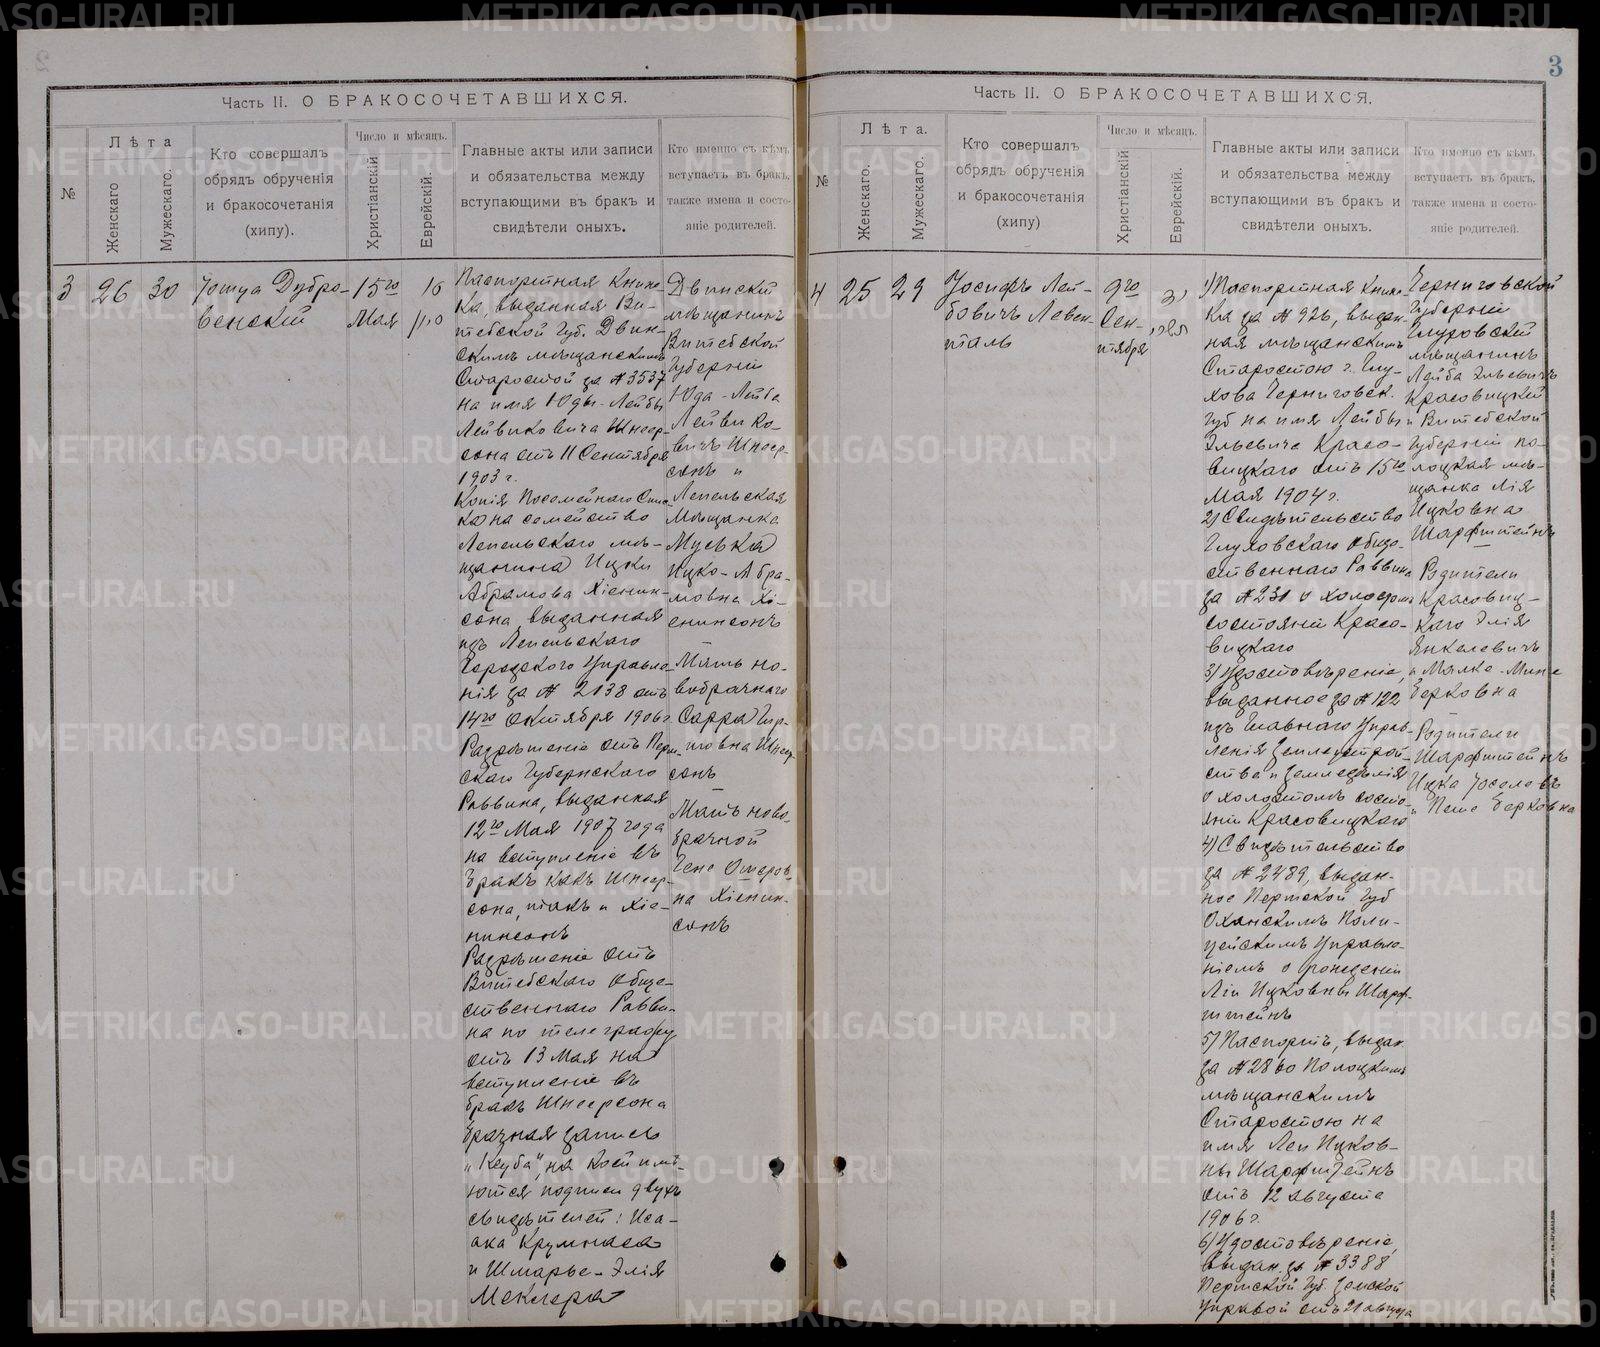 3
Часть II. О БРАКОСОЧЕТАВШИХСЯ.
№
Лѣта
Женскаго
Мужескаго.
Кто совершалъ
обрядъ обрученія
и бракосочетанія
(хипу).
Число и мѣсяцъ.
Христіанскій
Еврейскій.
Главные акты или записи
и обязательства между
вступающими въ бракъ и
свидѣтели оныхъ.
Кто именно съ кѣмъ
вступаетъ въ бракъ,
также имена и состо-
яніе родителей.
3
26
30
Іошуа Дубро-
венскій
15го
Мая
Паспортная Книж
ка, выданная Ви-
тебской Губ. Двин-
скимъ мѣщанскимъ
Старостой за № 3537
на имя Юды-Лейбы
Лейвиковича Шнеер-
сона отъ 11 Сентября
1903 г.
Копія Посемейнаго Спис
ка на семейство
Лепельскаго мѣ-
щанина Ицки
Абрамова Хіенин-
сона, выданная
изъ Лепельскаго
Городского Управле-
нія за № 2138 отъ
14го Октября 1906 г.
Разрѣшеніе отъ Перм-
скаго Губернскаго
Раввина, выданная
12го Мая 1907 года
на вступленіе въ
бракъ какъ Шнеер-
сона, такъ и Хіе-
нинсонъ
Разрѣшеніе отъ
Витебскаго Обще-
ственнаго Равви-
на по телеграфу
отъ 13 Мая на
вступленіе въ
бракъ Шнеерсона
Брачная запись
на коей имѣ-
ются подписи двухъ
свидѣтелей: Иса-
ака
и Шмарье-Элія
Меклера
Двинскій
мѣщанинъ
Витебской
Губерніи
Юда-Лейба
Лейвико-
вичъ Шнеер-
сонъ и
Лепельская
Мѣщанка
Муська
Ицко-Абра-
мовна Хі-
енинсонъ
Мать но-
вобрачнаго
Сарра Гир-
шовна Шнеер-
сонъ
Мать ново-
брачной
Гене Ошеров-
на Хіенин-
сонъ
Часть II. О БРАКОСОЧЕТАВШИХСЯ.
№
Лѣта.
Женскаго.
Мужескаго.
Кто совершалъ
обрядъ обрученія
и бракосочетанія
(хипу)
Число и мѣсяцъ.
Христіанскій
Еврейскій.
Главные акты или записи
и обязательства между
вступающими въ бракъ и
свидѣтели оныхъ.
Кто именно съ кѣмъ
вступаетъ въ бракъ,
также имена и состо-
яніе родителей.
4
25
29
Іосифъ Лей-
бовичъ Левен-
таль
9го
Сен-
тября
1) Паспортная Книж-
ка за № 926, выдан-
ная мѣщанскимъ
Старостою г. Глу-
хова Черниговск.
Губ на имя Лейбы
Эльевича Красо-
вицкаго отъ 15го
Мая 1904 г.
2) Свидѣтельство
Глуховскаго Обще-
ственнаго Раввина
за № 231 о холостомъ
состояніи Красо-
вицкаго
3) Удостовѣреніе,
выданное за № 122
изъ Главнаго Управ-
ленія Землеустрой-
ства и Земледѣлія
о холостомъ состо-
яніи Красовицкаго
4) Свидѣтельство
за № 2489, выдан-
ное Пермской Губ
Оханскимъ Поли-
цейскимъ Управле-
ніемъ о рожденіи
Ліи Ицковны Шарф-
штейнъ
5) Паспортъ, выдан.
за № 2860 Полоцкимъ
мѣщанскимъ
Старостою на
имя Леи Ицков-
ны Шарфштейнъ
отъ 12 августа
1906 г.
6) Удостовѣреніе,
выдан. за № 3388
Пермской Губ. Земской
Управой отъ 21 августа
Черниговской
Губерніи
Глуховскій
мѣщанинъ
Лейба Эльевичъ
Красовицкій
и Витебской
Губерніи по-
лоцкая мѣ-
щанка Лія
Ицковна
Шарфштейнъ
Родители
Красовиц-
каго Элія
Янкелевичъ
и Малко-Мина
Берковна
Родители
Шарфштейнъ
Ицка Іоселевъ
и Песе Берковна
METRIKI.GASO-URAL.RU